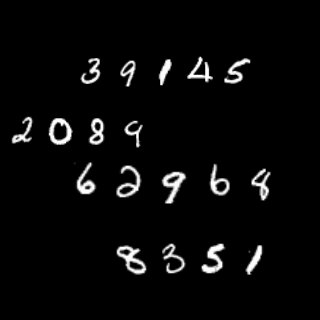 39145
2089
62968
8351